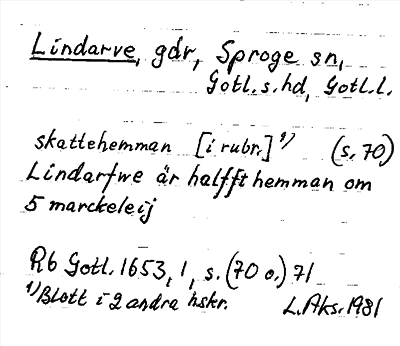 Lindarve, gdr, Sproge sn,
Gotl. s. hd, Gotl. l.
skattehemman [i rubr.] 1) (s. 70)
Lindarfwe är halfft hemman om
5 marckeleij
Rb Gotl. 1653, 1, s. (70 o.) 71
1) Blott i 2 andra hskr. L. Aks. 1981